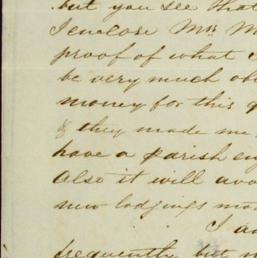 but you see that
I enclose Mrs M
proof of what I
be very much ob
money for this q
& they made me
have a parish en
Also it will avo
new lodgings mo
I a
frequently but